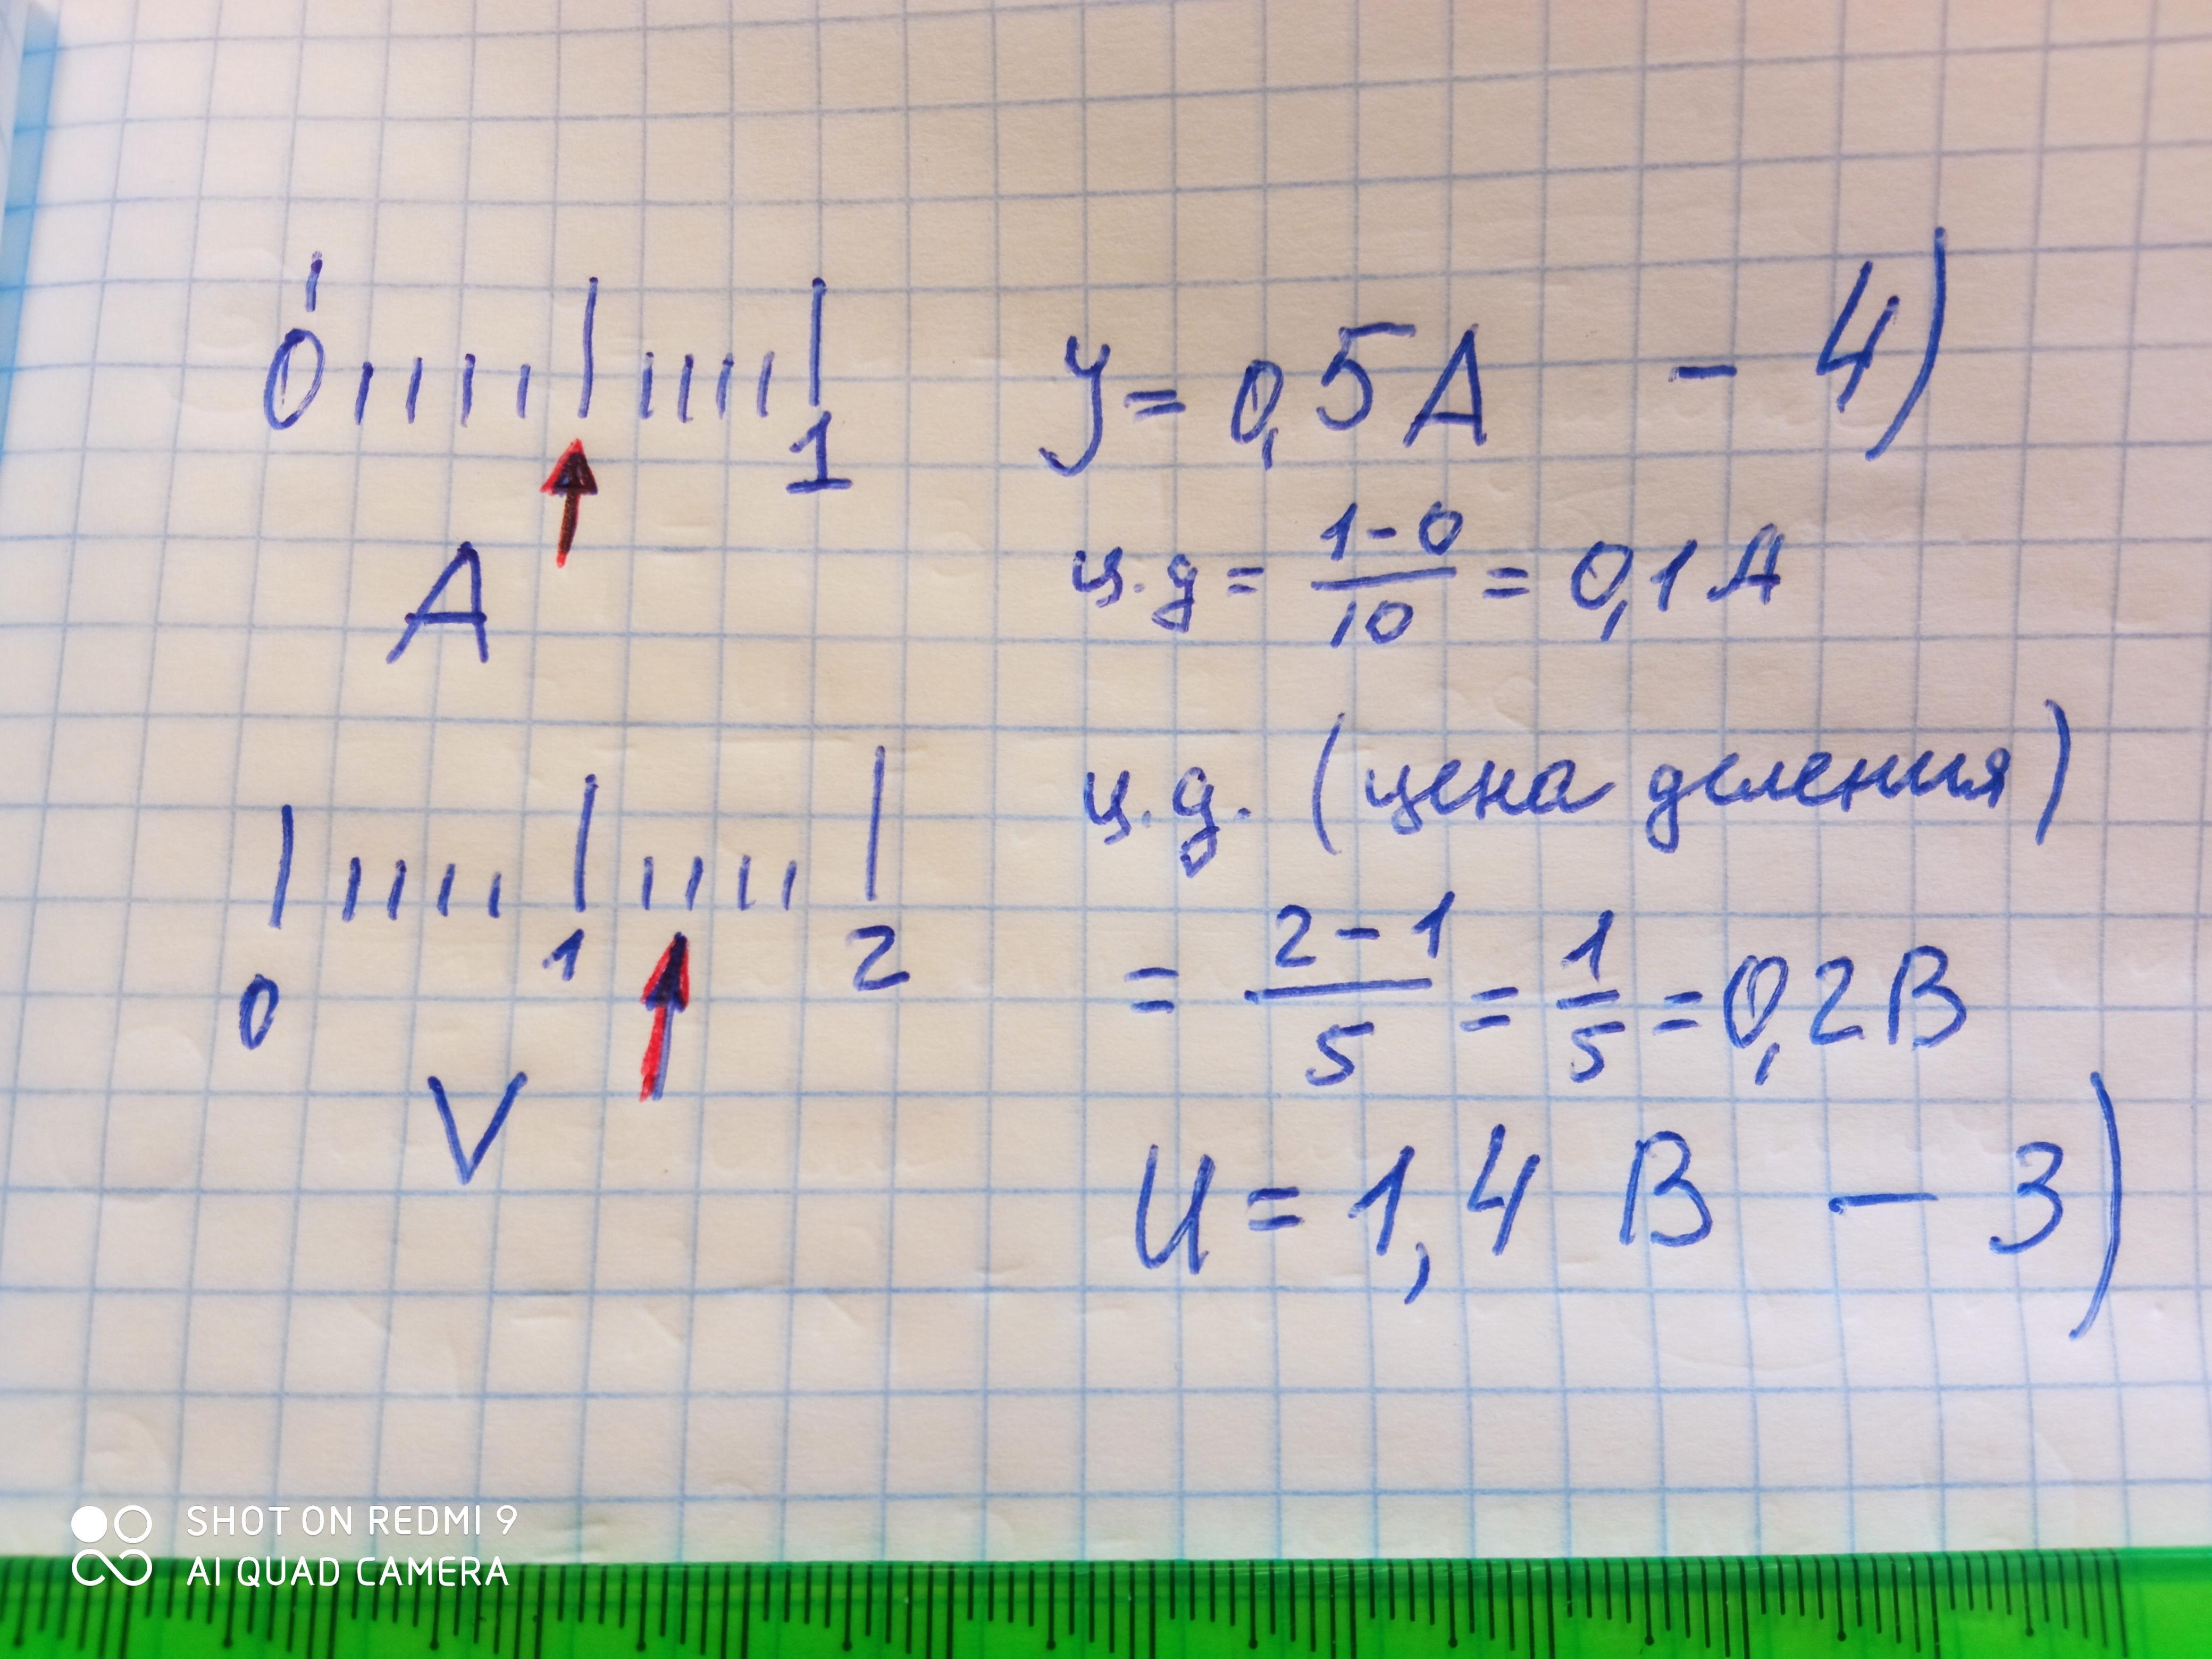 0 1
A
У = 0,5 А - 4)
ц.д = 1-0/10 = 0,1 А
0 1 2
V
ц.д. (цена деления)
= 2-1/5 = 1/5 = 0,2 В
U = 1,4 В - 3)
SHOT ON REDMI 9
AI QUAD CAMERA